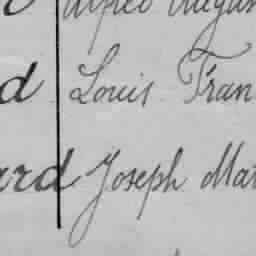 Alfred
d Louis Fran
ard Joseph Mar